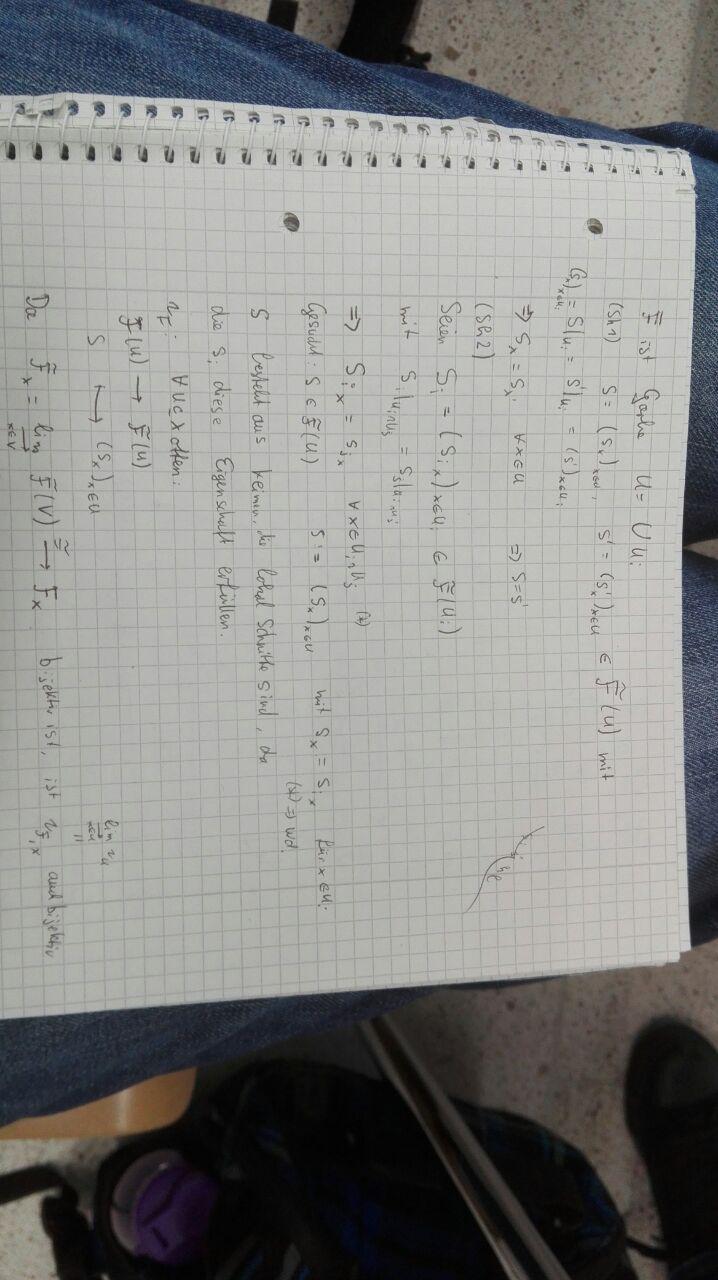 F̃ ist Garbe U = ⋃ Uᵢ
(Sh1) S = (sₓ)ₓ∈U, S' = (s'ₓ)ₓ∈U ∈ F̃(U) mit
(sₓ)ₓ∈Uᵢ = S|Uᵢ = S'|Uᵢ = (s')ₓ∈Uᵢ
⇒ sₓ = sₓ' ∀x∈U ⇒ S=S'
(Sh2)
Seien Sᵢ = (Sᵢₓ)ₓ∈Uᵢ ∈ F̃(Uᵢ)
mit Sᵢ|Uᵢ∩Uⱼ = Sⱼ|Uᵢ∩Uⱼ
⇒ Sᵢₓ = Sⱼₓ ∀x∈Uᵢ∩Uⱼ (*)
Gesucht: S ∈ F̃(U) S := (Sₓ)ₓ∈U mit Sₓ = Sᵢₓ für x∈Uᵢ
(*) ⇒ wd.
S besteht aus Keimen, die lokal Schnitte sind, da
die Sᵢ diese Eigenschaft erfüllen.
∀U⊆X offen:
F(U) → F̃(U)
S ↦ (Sₓ)ₓ∈U
Da F̃ₓ = lim→ x∈V F̃(V) ≅→ Fₓ bijektiv ist, ist auch bijektiv